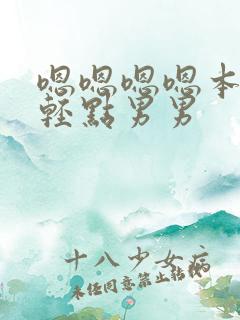 嗯嗯嗯嗯本
輕點男男
十八少女病
未任同意禁止転載